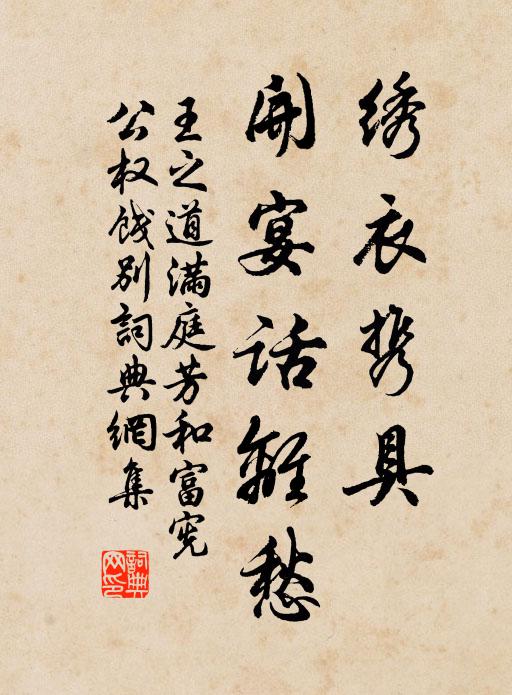 绣衣携具
開宴话離愁
王之道滿庭芳和富宪
公权餞别詞典網集
詞典网印